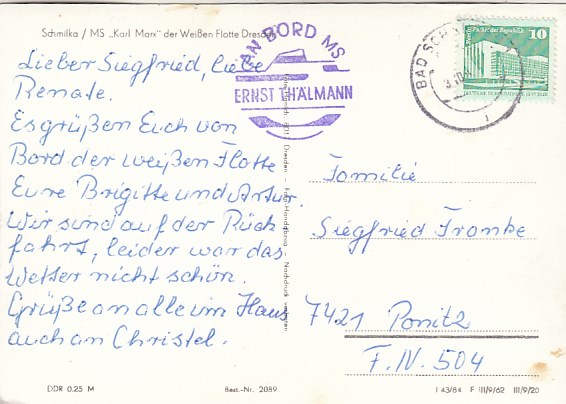 Schmilka / MS „Karl Marx" der Weißen Flotte Dresden
Lieber Siegfried, liebe
Renate.
Es grüßen Euch von
Bord der weißen Flotte
Eure Brigitte und Artur.
Wir sind auf der Rück
fahrt, leider war das
Wetter nicht schön.
Grüße an alle im Haus
auch an Christel.
AN BORD MS
ERNST THÄLMANN
BAD SCH
10
Palast der Republik
Familie
Siegfried Franke
7421 Ponitz
F. IV. 504
DDR 0.25 M
Best.-Nr. 2089
I 43/84 F III/9/62 III/9/20